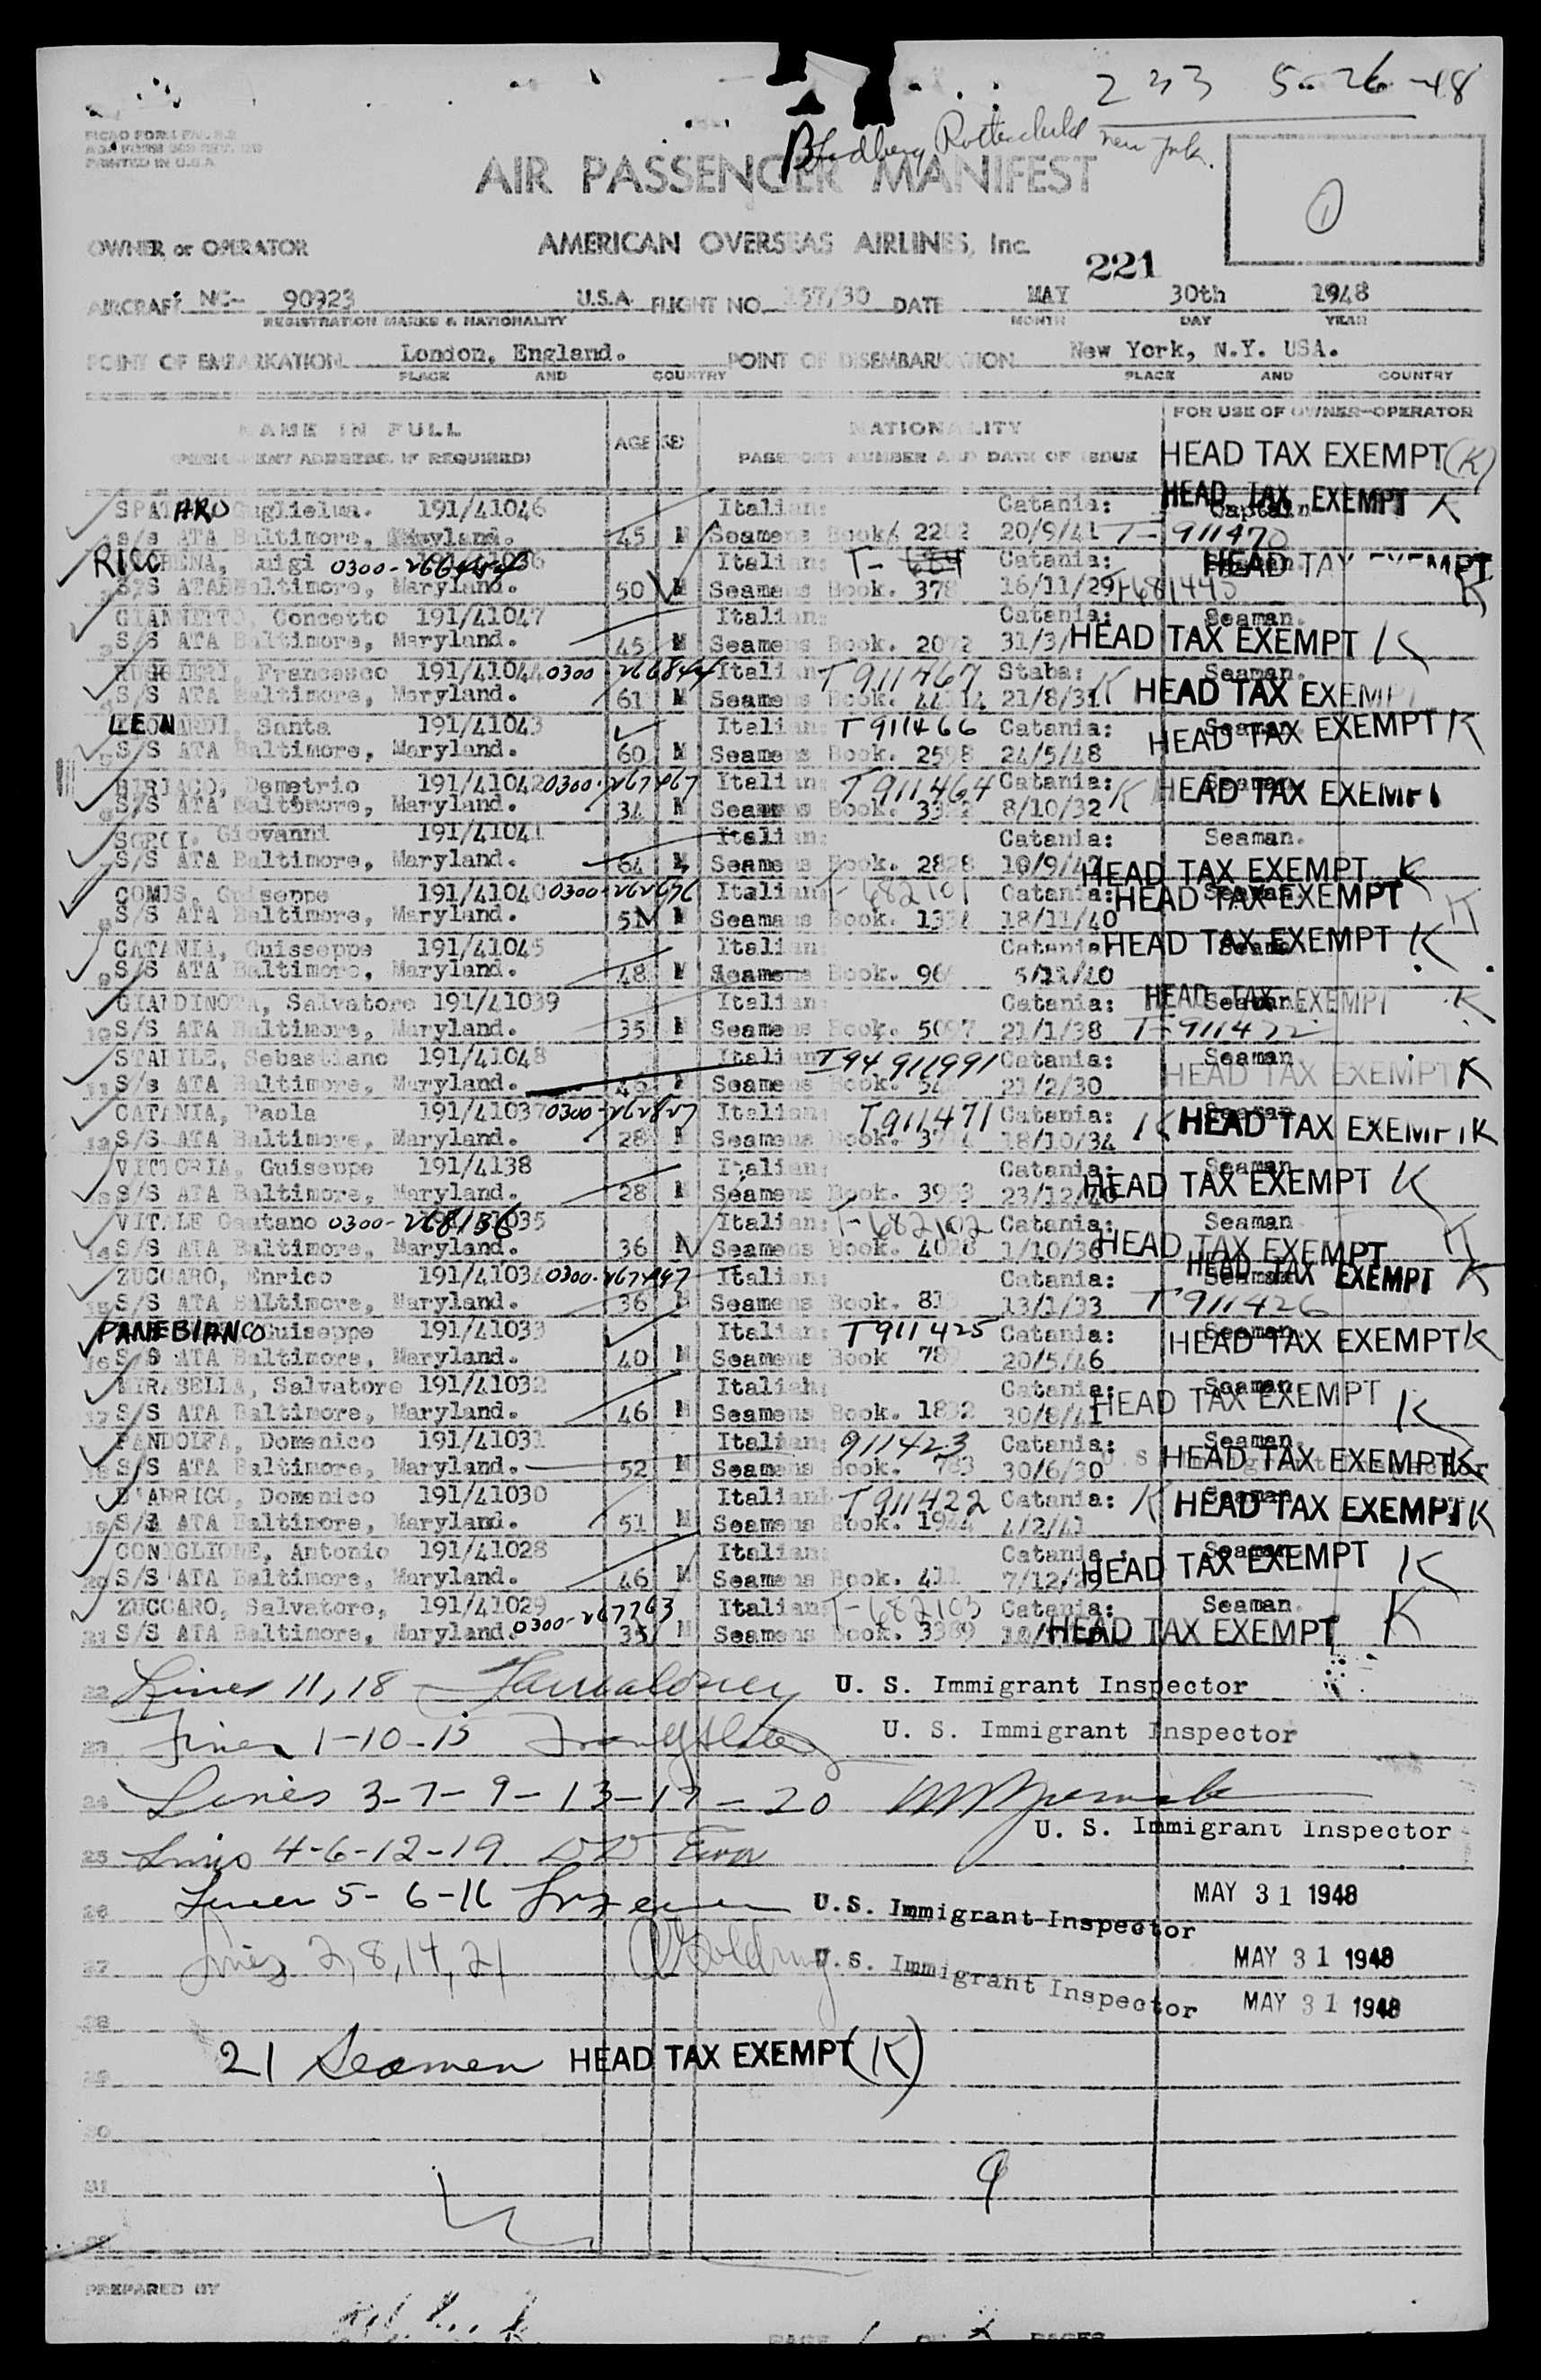 233 5-26-48
New York.
PRINTED IN U.S.A
AIR PASSENGER MANIFEST
1
OWNER or OPERATOR AMERICAN OVERSEAS AIRLINES, Inc.
221
AIRCRAFT NC- 90923 U.S.A. FLIGHT NO. 157/30 DATE MAY 30th 1948
REGISTRATION MARKS & NATIONALITY MONTH DAY YEAR
POINT OF EMBARKATION London, England. POINT OF DISEMBARKATION New York, N.Y. USA.
PLACE AND COUNTRY PLACE AND COUNTRY
FOR USE OF OWNER-OPERATOR
NAME IN FULL AGE SEX NATIONALITY
(PERMANENT ADDRESS, IF REQUIRED) PASSPORT NUMBER AND DATE OF ISSUE HEAD TAX EXEMPT (K)
SPATARO Guglielmo. 191/41046 Italian: Catania: Captain HEAD TAX EXEMPT K
1 s/s ATA Baltimore, Maryland. 45 M Seamens Book 2202 20/9/41 T-911470
RICC Luigi Italian: T- Catania: HEAD TAX EXEMPT
S/S ATA Baltimore, Maryland. 50 M Seamens Book. 378 16/11/29 K
GIANNITTO, Concetto 191/41047 Italian: Catania: Seaman.
3 S/S ATA Baltimore, Maryland. 45 M Seamens Book. 2072 31/3/ HEAD TAX EXEMPT K
Francesco 191/41044 0300-266844 Italian T911467 Staba: K Seaman.
S/S ATA Baltimore, Maryland. 61 M Seamens Book. 21/8/31 HEAD TAX EXEMPT
LEONARDI, Santa 191/41043 Italian: T911466 Catania: Seaman.
5 S/S ATA Baltimore, Maryland. 60 M Seamens Book. 2598 24/5/48 HEAD TAX EXEMPT K
Demetrio 191/41042 0300-267267 Italian: T911464 Catania: K Seaman.
6 S/S ATA Baltimore, Maryland. 34 M Seamens Book. 8/10/32 HEAD TAX EXEMPT
SORCI. Giovanni 191/41041 Italian: Catania: Seaman.
7 S/S ATA Baltimore, Maryland. 64 M Seamens Book. 2828 HEAD TAX EXEMPT K
COMIS, Guiseppe 191/41040 0300-262676 Italian T-682101 Catania: Seaman HEAD TAX EXEMPT K
8 S/S ATA Baltimore, Maryland. 51 M Seamens Book. 18/11/40
CATANIA, Guisseppe 191/41045 Italian: Catania HEAD TAX EXEMPT K
9 S/S ATA Baltimore, Maryland. 48 M Seamens Book.
GIARDINOTA, Salvatore 191/41039 Italian: Catania: Seaman HEAD TAX EXEMPT K
10 S/S ATA Baltimore, Maryland. 35 M Seamens Book. 5097 21/1/38 T-911472
STABILE, Sebastiano 191/41048 Italian T94 911991 Catania: Seaman
11 S/s ATA Baltimore, Maryland. 46 M Seamens Book. 21/2/30 HEAD TAX EXEMPT K
CATANIA, Paola 191/41037 0300-262827 Italian: T911471 Catania: Seaman
12 S/S ATA Baltimore, Maryland. 28 M Seamens Book. 18/10/34 K HEAD TAX EXEMPT K
VITTORIA, Guiseupe 191/4138 Italian: Catania: Seaman
13 S/S ATA Baltimore, Maryland. 28 M Seamens Book. 23/12/40 HEAD TAX EXEMPT K
VITALE Gaetano 0300-268136 Italian: T-682102 Catania: Seaman
14 S/S ATA Baltimore, Maryland. 36 M Seamens Book. 4028 1/10/36 HEAD TAX EXEMPT K
ZUCCARO, Enrico 191/41034 Italian: Catania: Seaman HEAD TAX EXEMPT K
15 S/S ATA Baltimore, Maryland. 36 M Seamens Book. 13/1/33 T911426
PANEBIANCO Guiseppe 191/41033 Italian: T911425 Catania: Seaman
16 S/S ATA Baltimore, Maryland. 40 M Seamens Book 20/5/46 HEAD TAX EXEMPT K
MIRABELLA, Salvatore 191/41032 Italian: Catania: Seaman
17 S/S ATA Baltimore, Maryland. 46 M Seamens Book. 30/8/41 HEAD TAX EXEMPT K
PANDOLFA, Domenico 191/41031 Italian: 911423 Catania: Seaman.
18 S/S ATA Baltimore, Maryland. 52 M Seamens Book. 30/6/30 HEAD TAX EXEMPT K
D'ARRIGO, Domenico 191/41030 Italian T911422 Catania: K Seaman
19 S/S ATA Baltimore, Maryland. 51 M Seamens Book. 4/2/41 HEAD TAX EXEMPT K
CONIGLIONE, Antonio 191/41028 Italian: Catania: Seaman
20 S/S ATA Baltimore, Maryland. 46 M Seamens Book. 411 7/12/29 HEAD TAX EXEMPT K
ZUCCARO, Salvatore, 191/41029 Italian T-682103 Catania: Seaman.
21 S/S ATA Baltimore, Maryland. 0300-267763 35 M Seamens Book. 3389 HEAD TAX EXEMPT K
22 Lines 11, 18 U. S. Immigrant Inspector
23 Lines 1-10-15 U. S. Immigrant Inspector
24 Lines 3-7-9-13-17-20
U. S. Immigrant Inspector
25 Lines 4-6-12-19
26 Lines 5-6-16 U.S. Immigrant Inspector MAY 31 1948
27 Lines 2, 8, 14, 21 U.S. Immigrant Inspector MAY 31 1948
28 MAY 31 1948
29 21 Seamen HEAD TAX EXEMPT (K)
30
31
9
PREPARED BY
PAGE 1 OF 2 PAGES